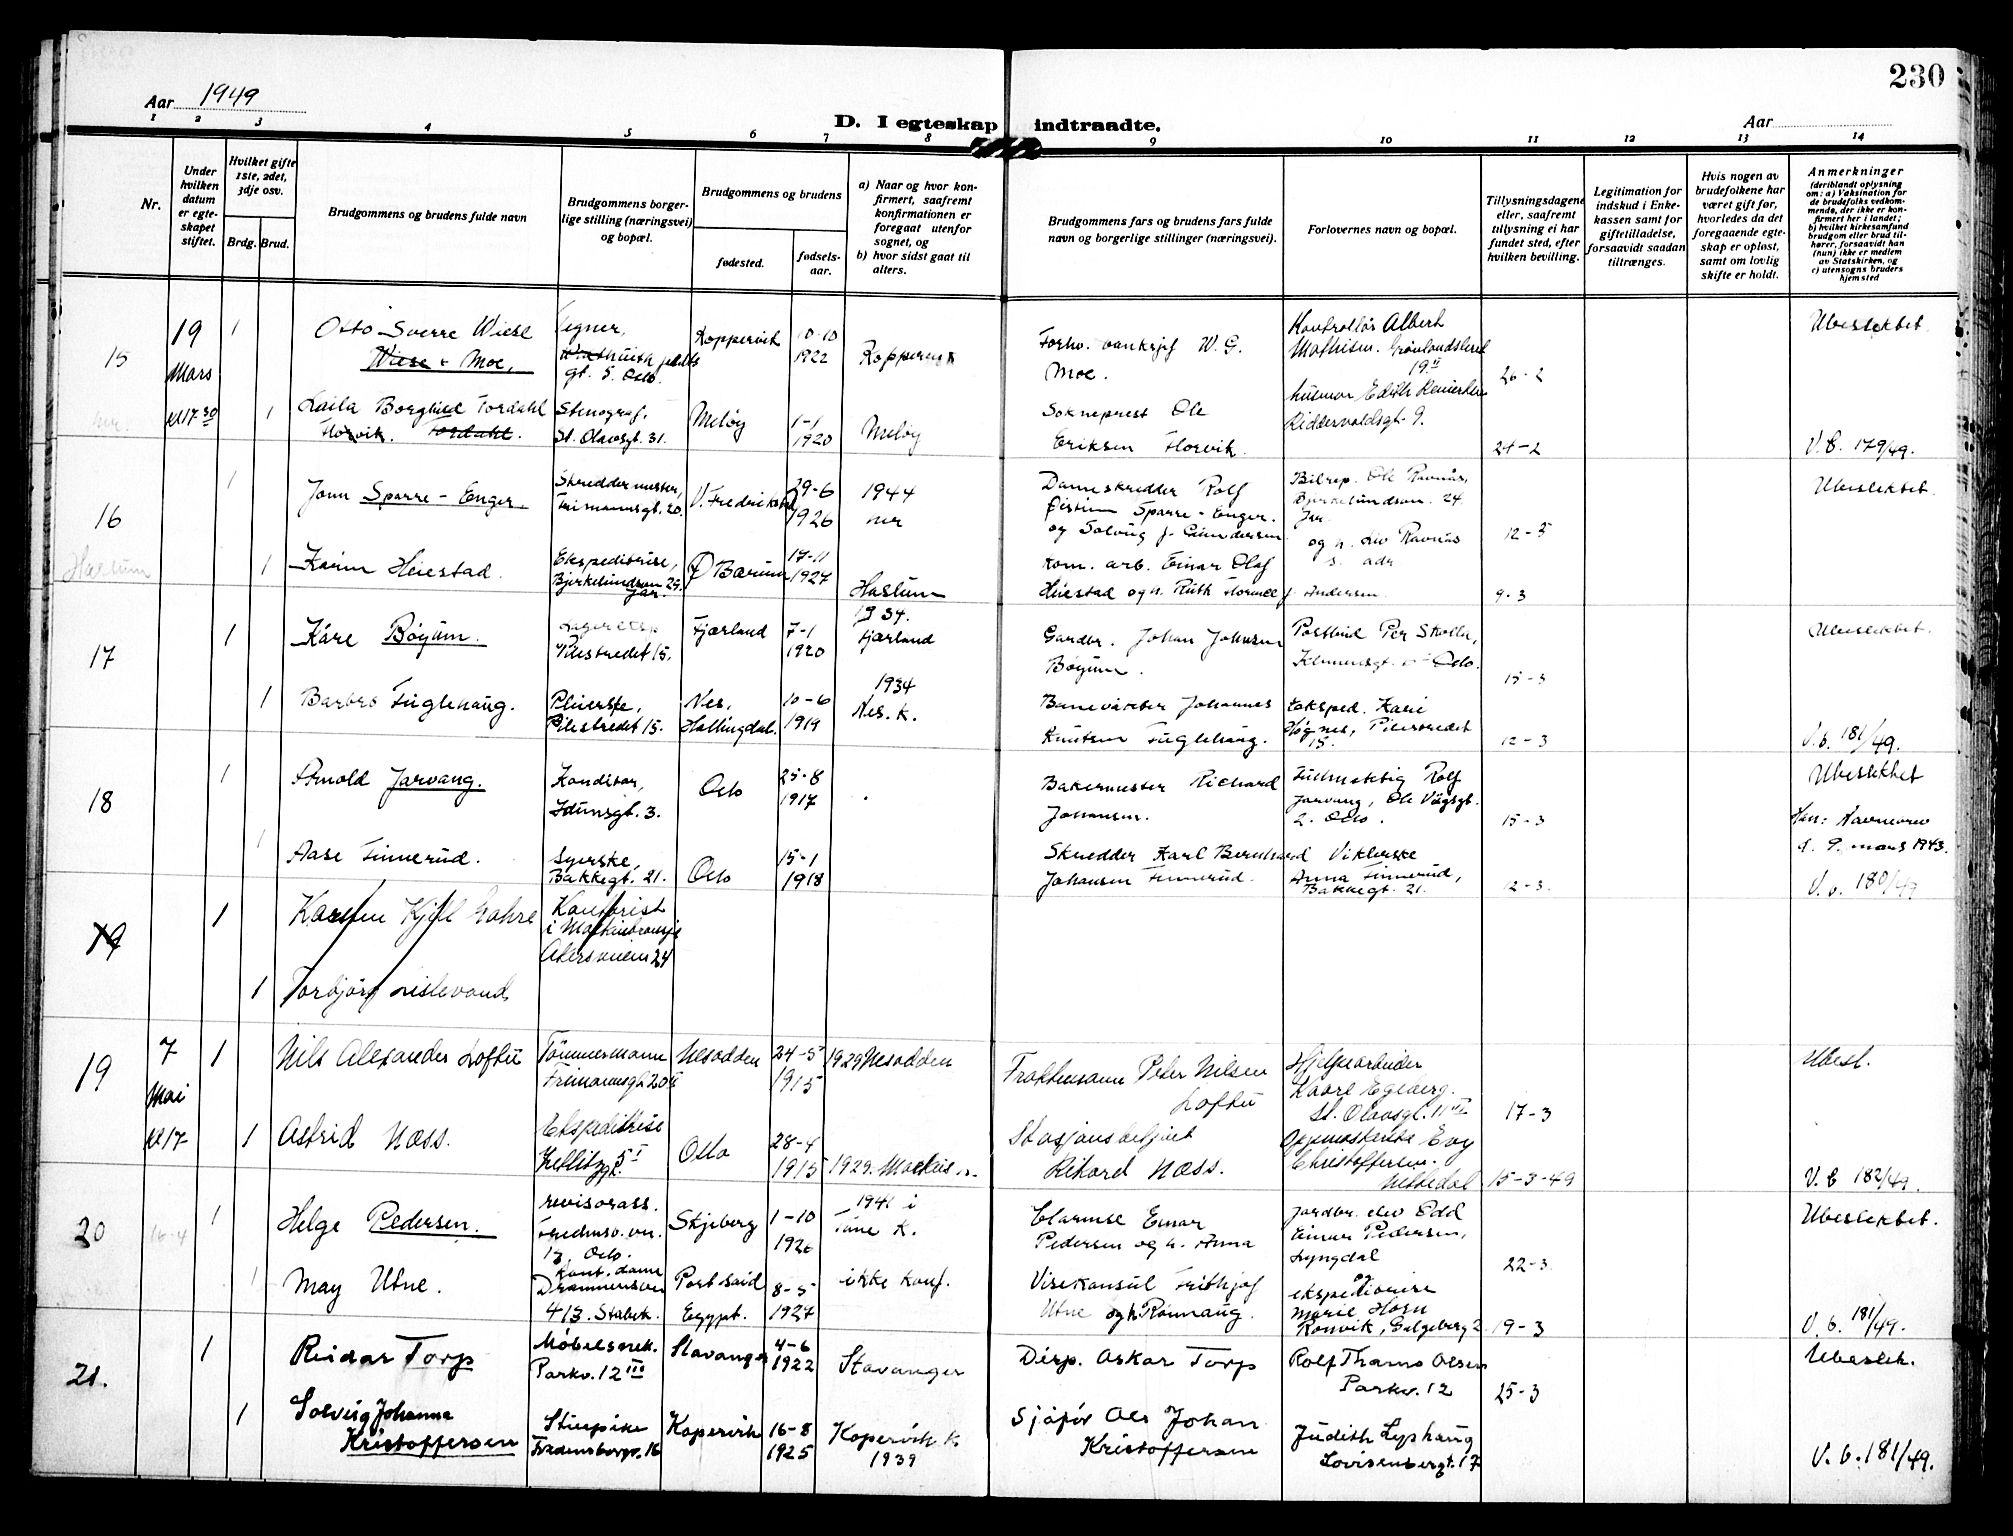 230
Aar 1949
D. I egteskap indtraadte.
Aar
1 2 3 4 5 6 7 8 9 10 11 12 13 14
Nr.
Under hvilken datum er egteskapet stiftet.
Hvilket gifte 1ste, 2det, 3dje osv.
Brdg. Brud.
Brudgommens og brudens fulde navn
Brudgommens borgerlige stilling (næringsvei) og bopæl.
Brudgommens og brudens
fødested.
fødselsaar.
a) Naar og hvor konfirmert, saafremt konfirmationen er foregaat utenfor sognet, og
b) hvor sidst gaat til alters.
Brudgommens fars og brudens fars fulde navn og borgerlige stillinger (næringsvei).
Forlovernes navn og bopæl.
Tillysningsdagene eller, saafremt tillysning ei har fundet sted, efter hvilken bevilling.
Legitimation for indskud i Enkekassen samt for giftetilladelse, forsaavidt saadan tiltrænges.
Hvis nogen av brudefolkene har været gift før, hvorledes da det foregaaende egteskap er opløst, samt om lovlig skifte er holdt.
Anmerkninger
(deriblandt oplysning om: a) Vaksination for de brudefolks vedkommende, der ikke er konfirmert her i landet; b) hvilket kirkesamfund brudgom eller brud tilhører, forsaavidt han (hun) ikke er medlem av Statskirken, og c) utensogns bruders hjemsted
15
19 Mars kl 17 30
1
Otto Sverre Wiese
Wiese - Moe,
Tegner,
gt. 5. Oslo.
Koppervik
10-10
1922
Koppervik
Forhv. banksjef W. G.
Moe.
Kontrollør Albert
Mathisen. Grønlandsleret
19 II
26-2
Ubeslektet
1
Laila Borghild Tordahl
Florvik. Tordahl.
Stenograf,
St. Olavsgt. 31.
Meløy
1-1
1920
Meløy
Sokneprest Ole
Eriksen Florvik.
Riddervoldsgt. 9.
24-2
V. b. 179/49.
16
1
John Sparre - Enger.
Skreddermester,
Frimannsgt. 20.
V. Fredrikstad
29-6
1926
1944
her
Dameskredder Rolf
Øistein Sparre - Enger.
og Solveig f. Gundersen
Bilrep. Ole Ravnås,
Bjerkelundsvn. 24.
Jar.
og h. Liv Ravnås
s. adr.
12-3
Ubeslektet.
Haslum
1
Karin Heiestad.
Ekspeditrise,
Bjerkelundsvn 29.
Jar.
Ø Bærum
17-11
1927
Haslum
Kom. arb. Einar Olaf
Heiestad og h. Ruth f. Andersen.
9-3
17
1
Kåre Bøyum.
Lagereksp
Pilestredet 15.
Fjærland
7-1
1920
1934.
Fjærland
Gardbr. Johan Johnsen
Bøyum.
Postbud Per
Oslo.
15-3
Ubeslektet.
1
Barbro Fuglehaug.
Pleierske,
Pilestredet 15.
Nes,
Hallingdal.
10-6
1919
1934
Nes. K.
Banevokter Johannes
Knutsen Fuglehaug.
Eksped. Kari
Høgnes, Pilestredet
15.
12-3
V. b. 181/49.
18
1
Arnold Jarvang.
Konditor,
Idunsgt. 3.
Oslo
25-8
1917
Bakermester Richard
Johansen.
Fullmektig Rolf
Jarvang, Ole Vigsgt.
2. Oslo.
15-3
Ubeslektet
Han: Navnebrev
d. 9. mars 1943.
1
Aase Finnerud.
Syerske,
Bakkegt. 21.
Oslo
15-1
1918
Skredder Karl Bernhard
Johansen Finnerud.
Viklerske
Anna Finnerud,
Bakkegt. 21.
12-3.
V. b. 180/49
19
1
Karsten Kjell
Kontorist
i
Akersveien 24
1
Torbjørg Lislevand
19
7 Mai kl 17
1
Nils Alexander Loftu
Tømmermann
Frimannsgt 20 II
Nesodden
24-5
1915
1929 Nesodden
Fraktemann Peter Nilsen
Loftu
Hjelpearbeider
Kaare Egeberg.
St. Olavsgt. 11 III
17-3
Ubesl.
1
Astrid Næss.
Ekspeditrise
gt. 5 I
Oslo
28-4
1915
1929. Markus k.
Stasjonsbetjent
Rikard Næss.
Oppmøterske Evy
Christoffersen.
Nittedal
15-3-49
V. b 182/49.
20
16-4
1
Helge Pedersen.
revisorass.
13, Oslo.
Skjeberg
1-10
1926
1941 i
Tune K.
Einar
Pedersen og h. Anna
Jordbr. elev Odd
Einar Pedersen,
Lyngdal
22-3
Ubeslektet.
1
May Utne.
Kont. dame
Drammensvn
413. Stabekk.
Port Said
Egypt.
8-5
1927
ikke konf.
Visekonsul Fridtjof
Utne og h. Rønnaug.
ekspeditrise
Marie Horn
Ronvik, Galgeberg 2
19-3
V. b. 181/49.
21.
1
Reidar Torp
Møbelsnek.
Parkv. 12 III
Stavanger
4-6
1922
Stavanger
Disp. Oskar Torp
Rolf Thams Olsen
Parkv. 12
25-3
Ubeslek.
1
Solveig Johanna
Kristoffersen
Stuepike
Fredensborgv. 16
Kopervik
16-8
1925
Kopervik k.
1939
Sjåfør Ole Johan
Kristoffersen
Judith Lyphaug
Lovisenbergt. 17
V. b. 181/49.